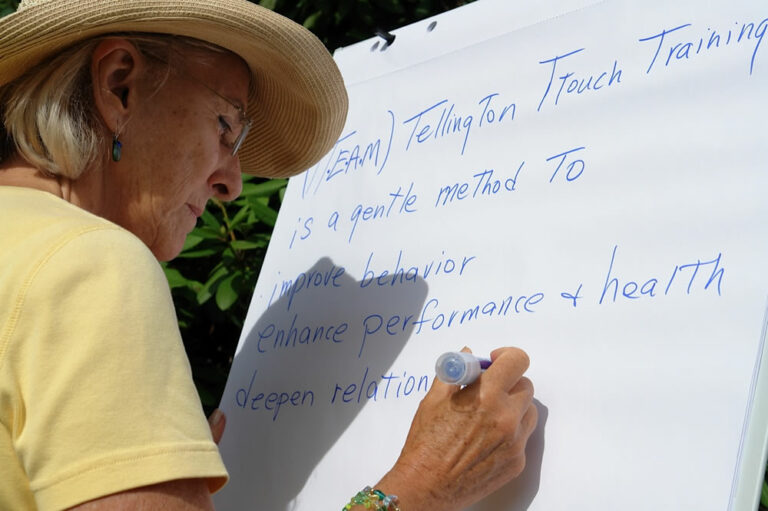 (T.E.A.M) Tellington Ttouch Training
is a gentle method to
improve behavior
enhance performance & health
deepen relation